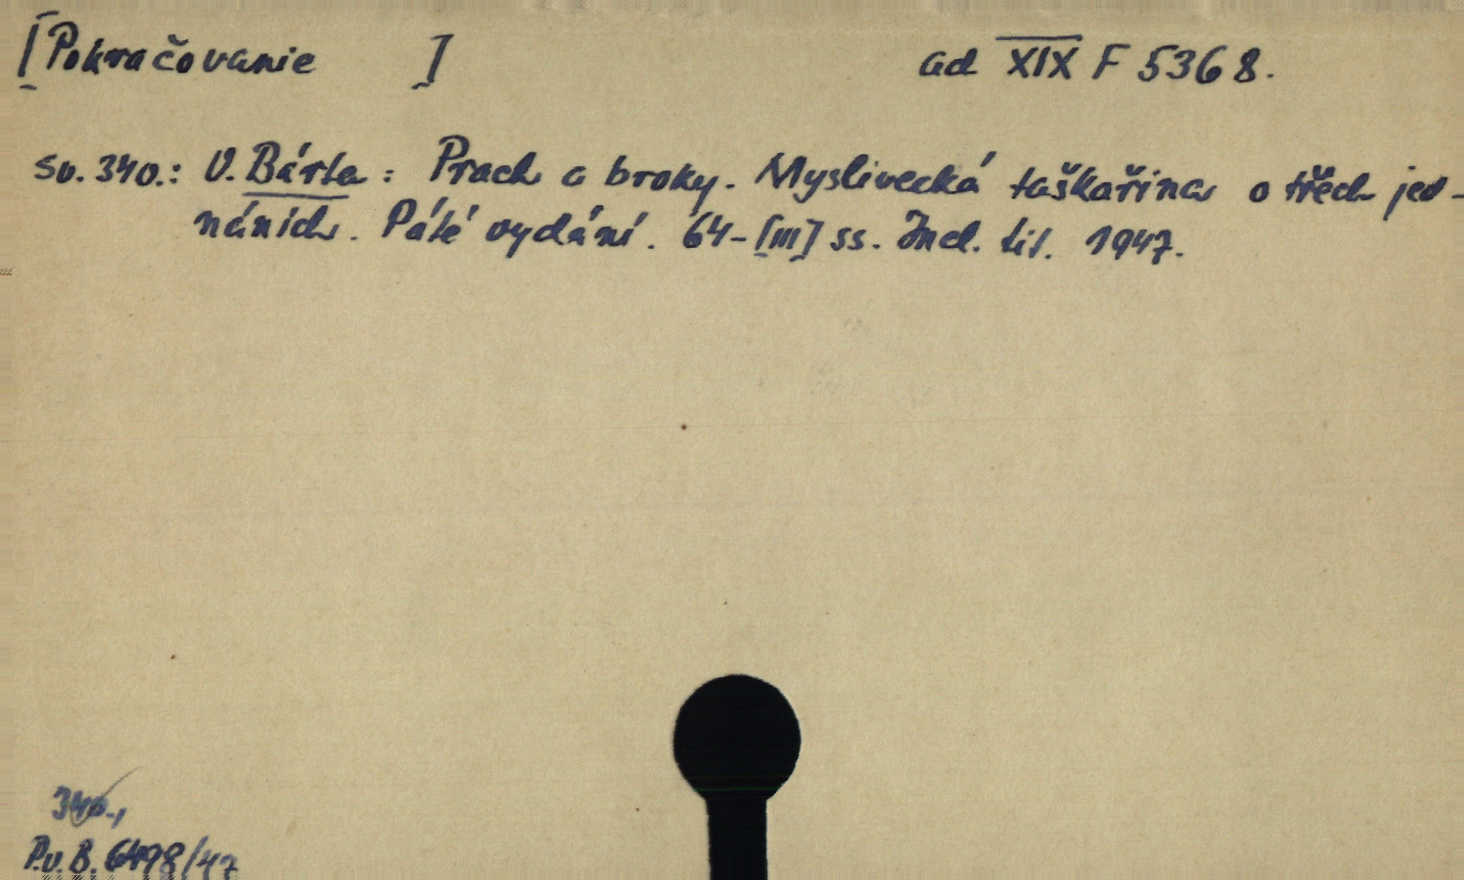 [Pokračovanie ] ad XIX F 5368.
Sv. 340.: V. Bárta: Prach a broky. Myslivecká taškařina o třech jed-
náních. Páté vydání. 64-[III] ss. Incl. tit. 1947.
340.,
P.v.B. 6498/47